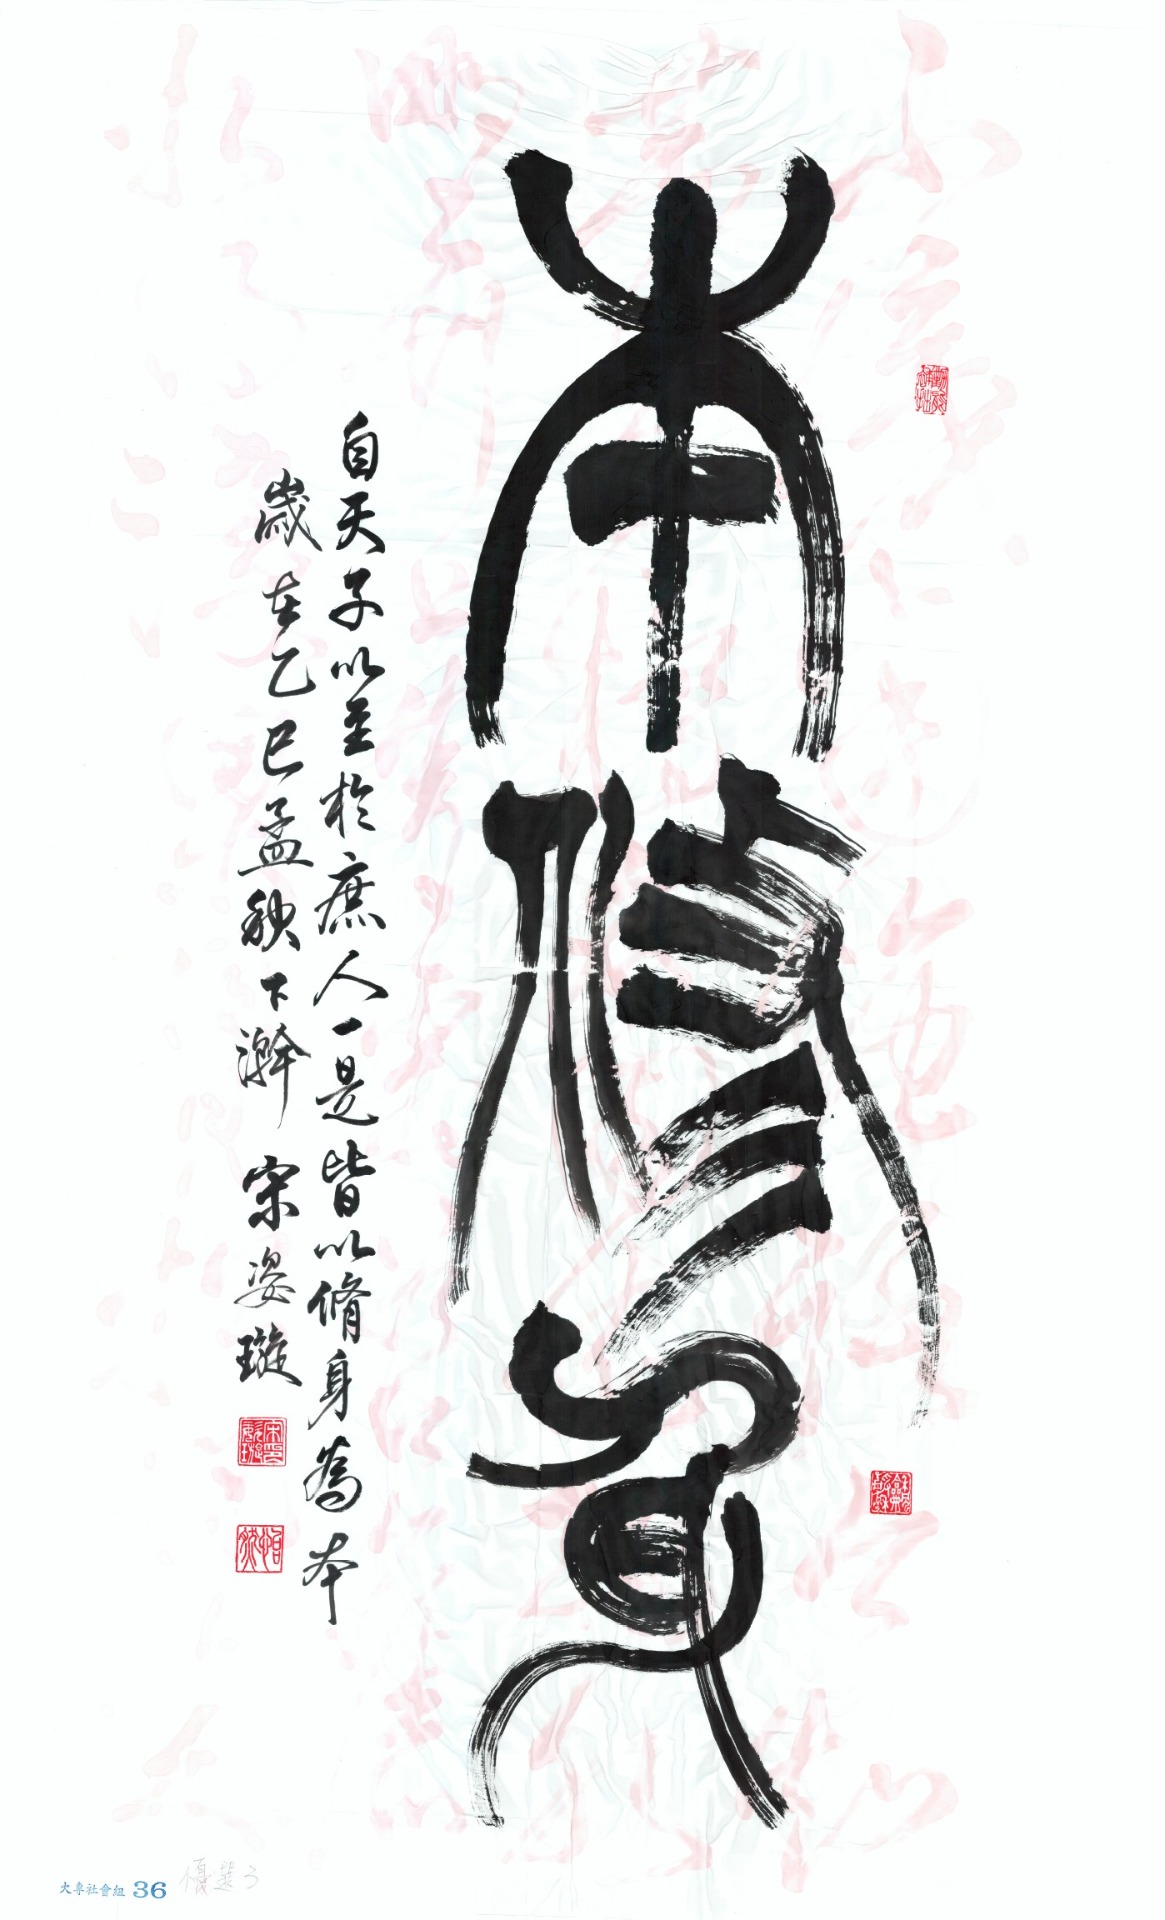 本脩身
自天子以至於庶人一是皆以脩身為本
歲在乙巳孟秋下澣 宋姿璇
大專社會組 36 優選3